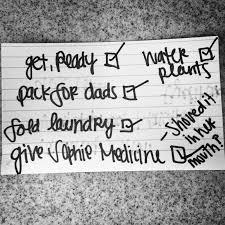 get ready ☑
water plants ☑
pack for dads ☑
fold laundry ☑
give Sophie Medicine ☑
- Shoved it in her mouth!